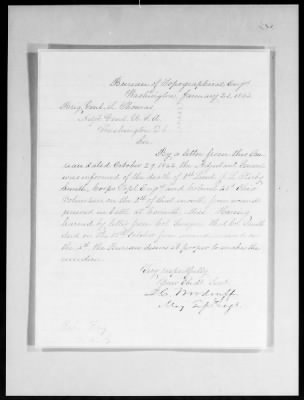 Bureau of Topographical Engrs
Washington, January 22, 1863
Brig. Genl. L. Thomas
Adjt. Genl. U.S.A.
Washington D.C.
Sir
By a letter from this Bureau
dated October 29, 1862 the Adjutant General
was informed of the death of 1st Lieut. J. L. Kirby
Smith, Corps Topl. Engrs and Colonel 43d Ohio
Volunteers on the of that month, from wounds
received in battle at Corinth, Miss. Having
learned by letter from Col. Swayne that Col. Smith
died on the 12th October from wounds received on
the 4th, the Bureau deems it proper to make the
correction.
Very respectfully
Your Obedt. Servt.
I. C. Woodruff
Maj. Topl. Engrs.